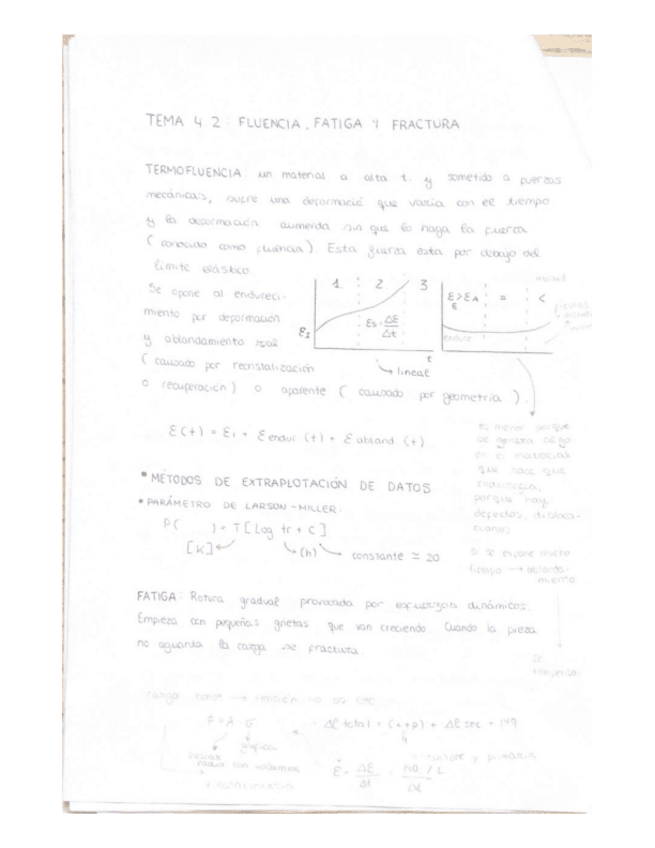 TEMA 4.2: FLUENCIA, FATIGA Y FRACTURA
TERMOFLUENCIA: un material a alta t. y sometido a fuerzas
mecánicas, sufre una deformació que varia con el tiempo
y la deformación aumenta sin que lo haga la fuerza
(conocido como fluencia). Esta fuerza esta por debajo del
limite elástico.
Se opone al endureci-
miento por deformación
y ablandamiento real
(causado por recristalización
o recuperación) o aparente (causado por geometria).
1 2 3
ε_I
Es = ΔE/Δt
t
lineal
= <
endure
ε(t) = ε_i + ε endur (t) + ε abland (t)
es menor porque
se genera algo
en el material
que hace que
endurezca,
porque hay
defectos, disloca-
ciones
si se expone mucho
tiempo →
se compensa.
• MÉTODOS DE EXTRAPLOTACIÓN DE DATOS
• PARÁMETRO DE LARSON-MILLER:
P( ) = T[Log tr + C]
[K] (h) constante ≃ 20
FATIGA: Rotura gradual provocada por esfuerzos dinámicos.
Empieza con pequeñas grietas que van creciendo. Cuando la pieza
no aguanta la carga se fractura.
carga const → tensión no es cte
F = A σ
gráfica
Δl total = (e+p) + Δl sec = 149
ε̇ = Δε/Δt = 140 / L / Δt